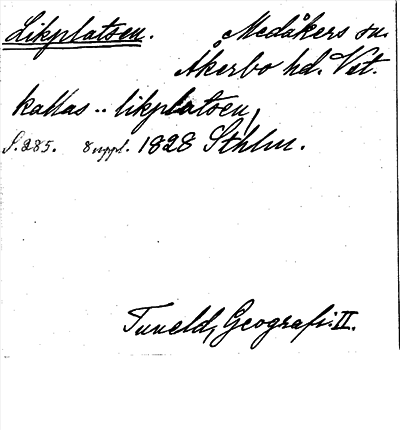 Likplatsen. Medåkers sn.
Åkerbo hd. Vstt.
kallas .. likplatsen,
S. 285. 8 uppl. 1828 Sthlm.
Tuneld, Geografi. II.